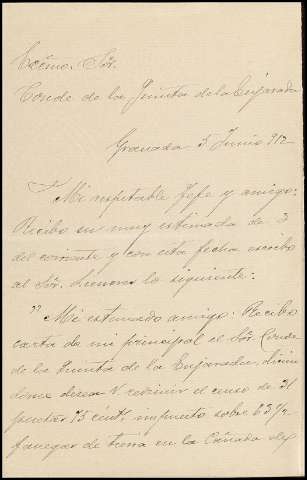 Excmo. Sór.
Conde de las Quintas de la Enjarada
Granada 5 Junio 912
Mi respetable Jefe y amigo:
Recibo su muy estimada de 3
del corriente y con esta fecha escribo
al Sór. Lienores lo siguiente:
"Mi estimado amigo: Recibo
carta de mi principal el Sór. Conde
de las Quintas de la Enjarada, dicien
dome desea V. redimir el censo de 21
pesetas 75 cénts, impuesto sobre 63 1/2
fanegas de tierra en la Cañada del